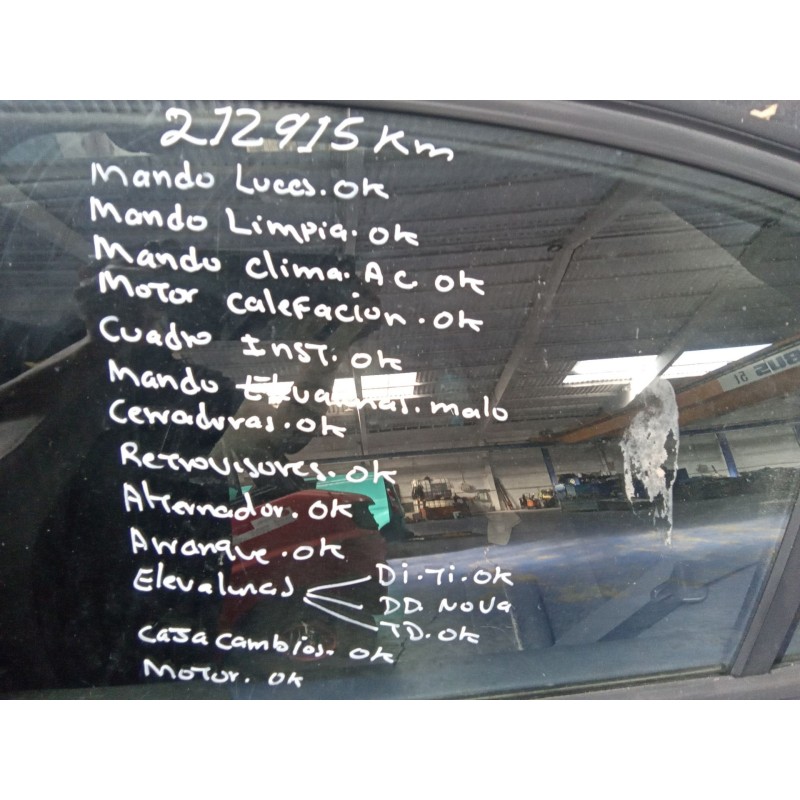 212915 Km
Mando Luces. OK
Mando Limpia. OK
Mando clima. A C OK
Motor calefacion. OK
Cuadro INST. OK
Mando Elevalunas. malo
Cerraduras. OK
Retrovisores. OK
Alternador. OK
Arranque. OK
Elevalunas
Di. Ti. OK
DD. Nova
TD. OK
caja cambios. OK
Motor. OK
BUS 51